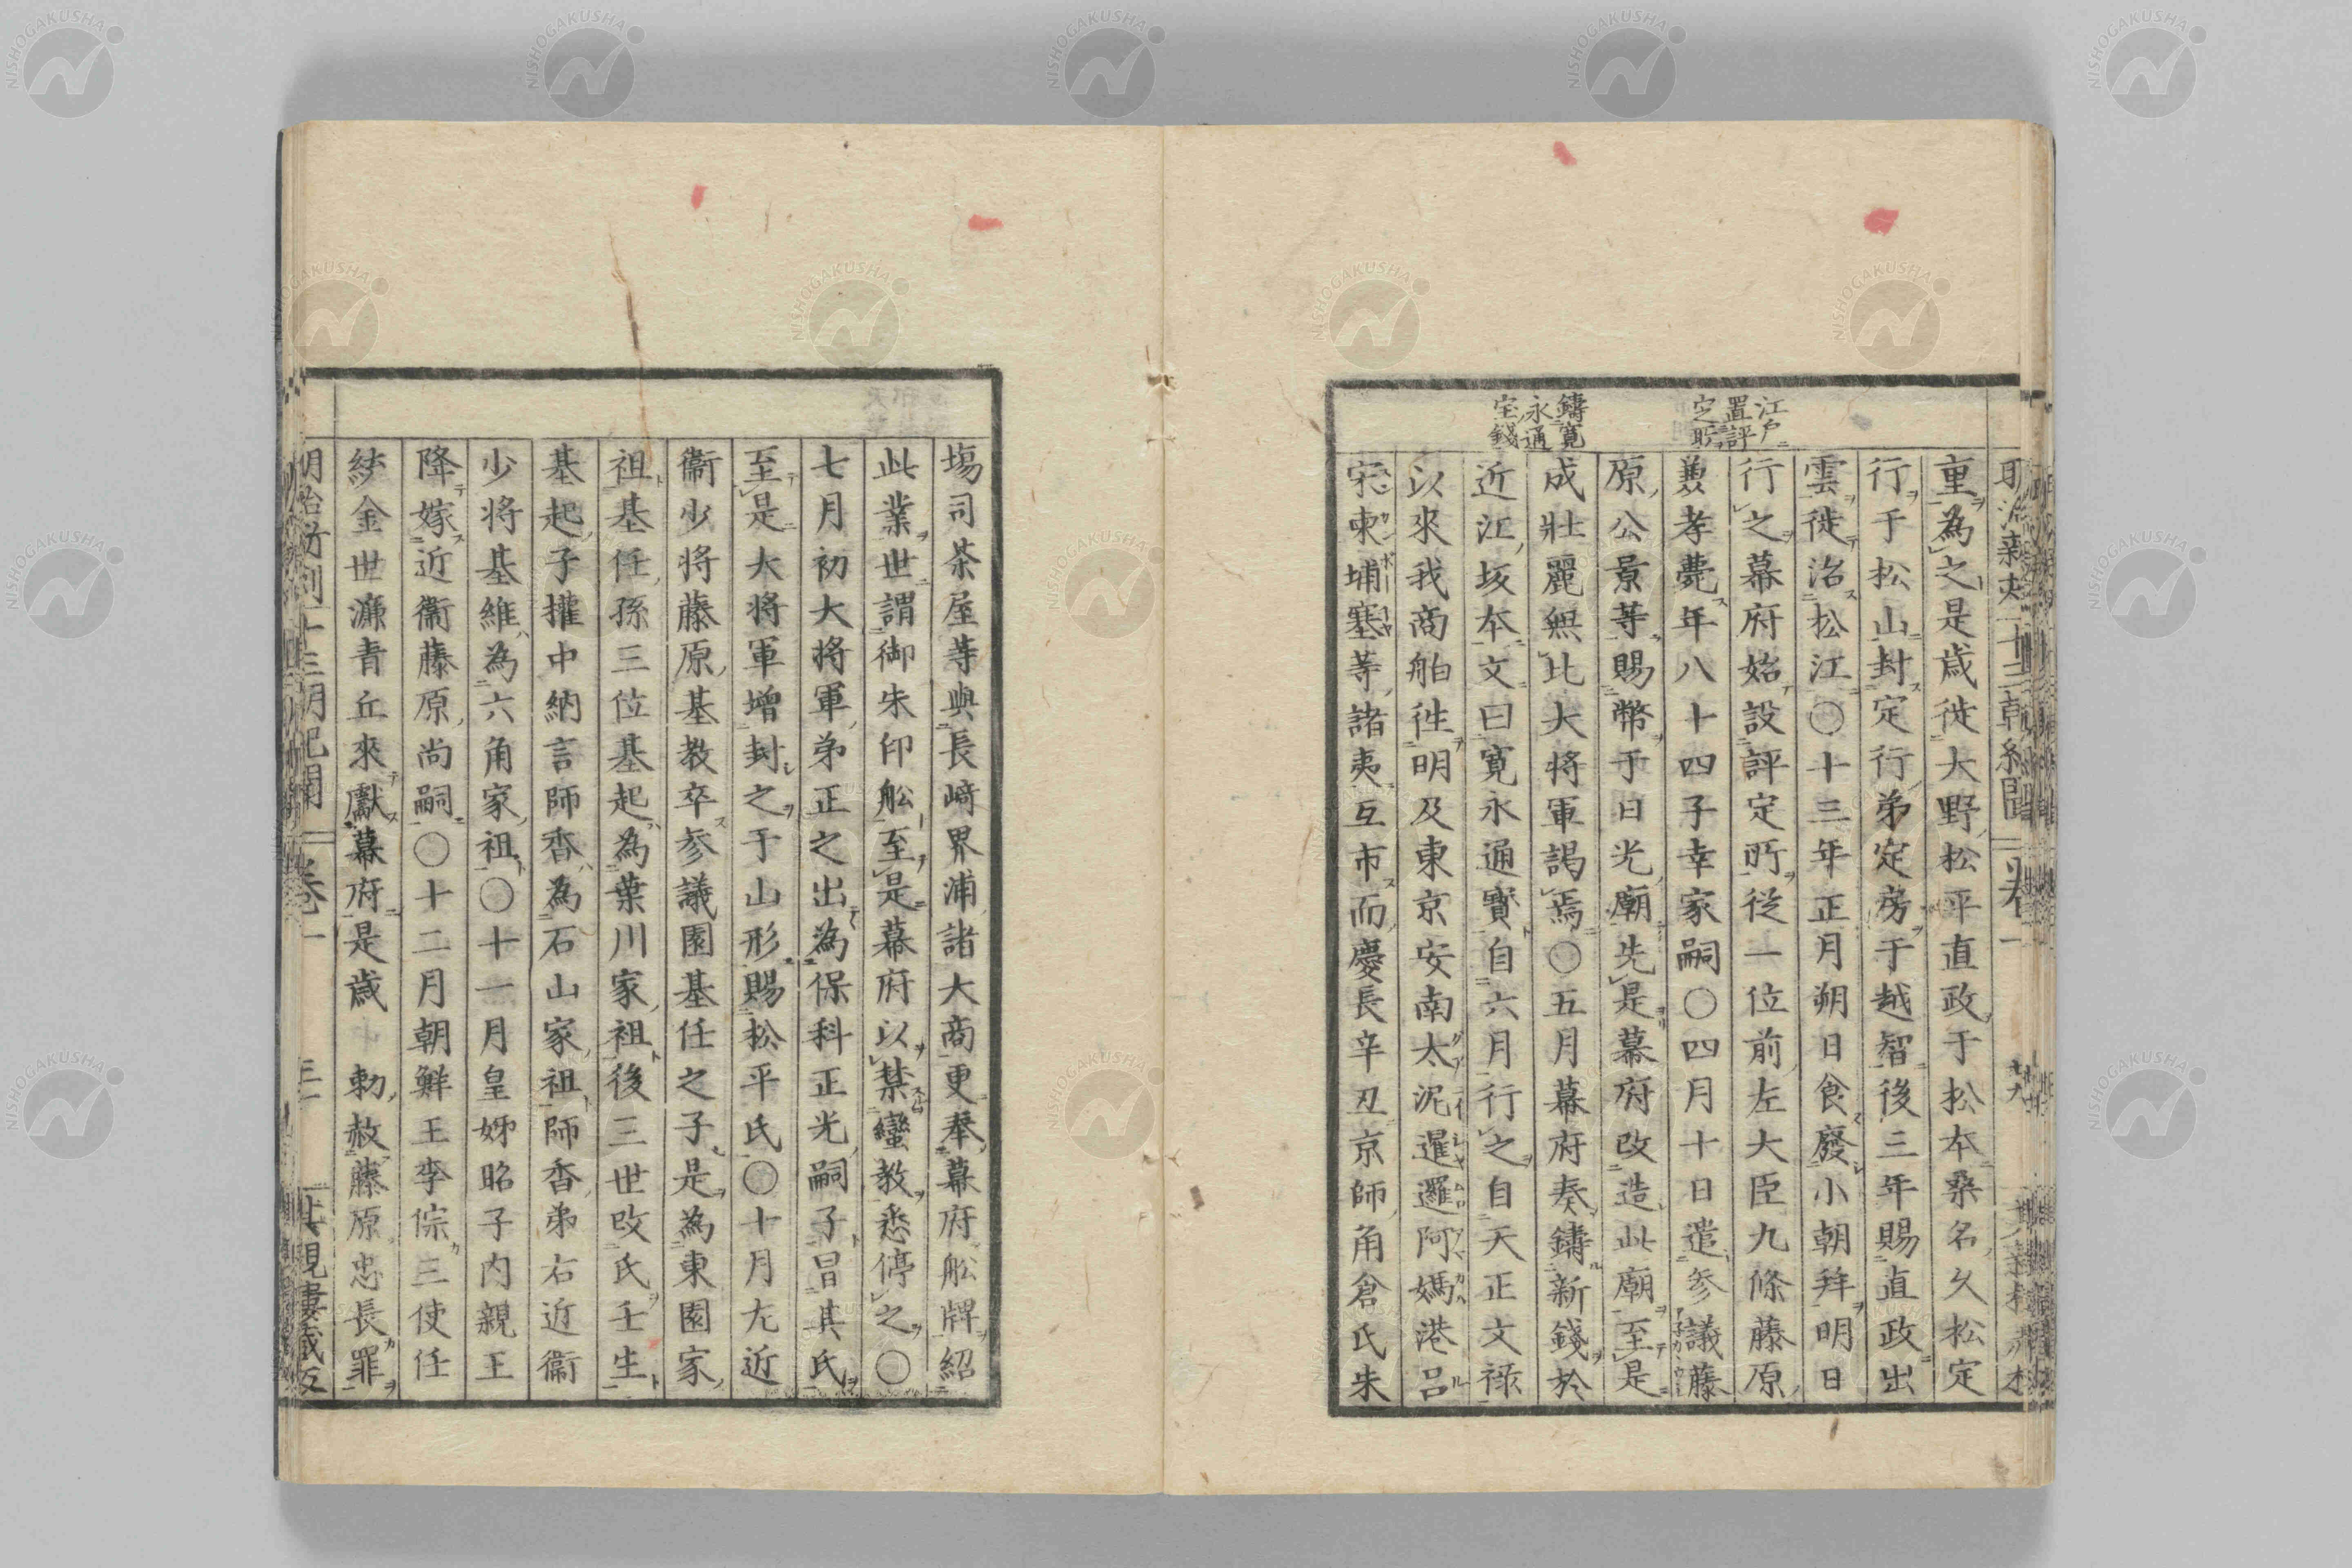 江戸
置評
定所
鑄寛
永通
宝錢
重為之是歳徙大野松平直政于松本桑名久松定
行于松山封定行弟定房于越智後三年賜直政出
雲徙治松江〇十三年正月朔日食廢小朝拜明日
行之幕府始設評定所從一位前左大臣九條藤原
兼孝薨年八十四子幸家嗣〇四月十日遣参議藤
原公景等賜幣于日光廟先是幕府改造此廟至是
成壯麗無比大将軍謁焉〇五月幕府奏鑄新錢於
近江坂本文曰寛永通寳自六月行之自天正文禄
以來我商舶徃明及東京安南太泥暹邏阿媽港呂
宋柬埔寨等諸夷互市而慶長辛丑京師角倉氏朱
塲司茶屋等與長﨑界浦諸大商更奉幕府舩牌紹
此業世謂御朱印舩至是幕府以禁蠻教悉停之〇
七月初大将軍弟正之出為保科正光嗣子冒其氏
至是大将軍增封之于山形賜松平氏〇十月左近
衞少将藤原基教卒参議園基任之子是為東園家
祖基任孫三位基起為葉川家祖後三世改氏壬生
基起子權中納言師香為石山家祖師香弟右近衞
少将基維為六角家祖〇十一月皇姊昭子内親王
降嫁近衞藤原尚嗣〇十二月朝鮮王李倧三使任
絖金世濂青丘來獻幕府是歳　勅赦藤原忠長罪